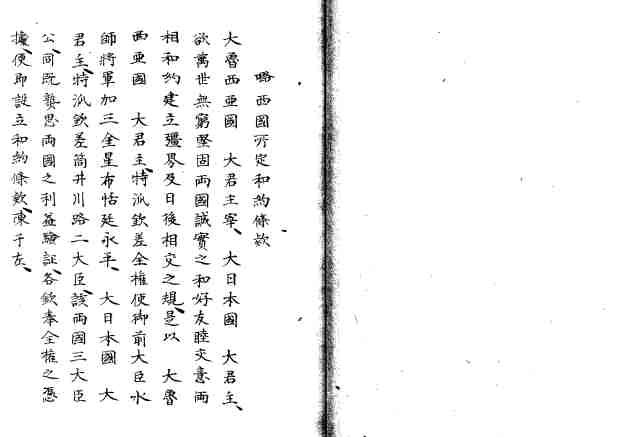 略西國所定和約條款
大魯西亜國　大君主宰、大日本國　大君主、
欲萬世無窮堅固両國誠實之和好友睦交意両
相和約建立疆界及日後相交之規、是以　大魯
西亜國　大君主、特派欽差全權使御前大臣水
師將軍加三全星布恬廷永平、大日本國　大
君主、特派欽差筒井川路二大臣、該両國三大臣
公同既龔思両國之利益驗証、各欽奉全權之憑
據、便即設立和約條欵、陳于左、